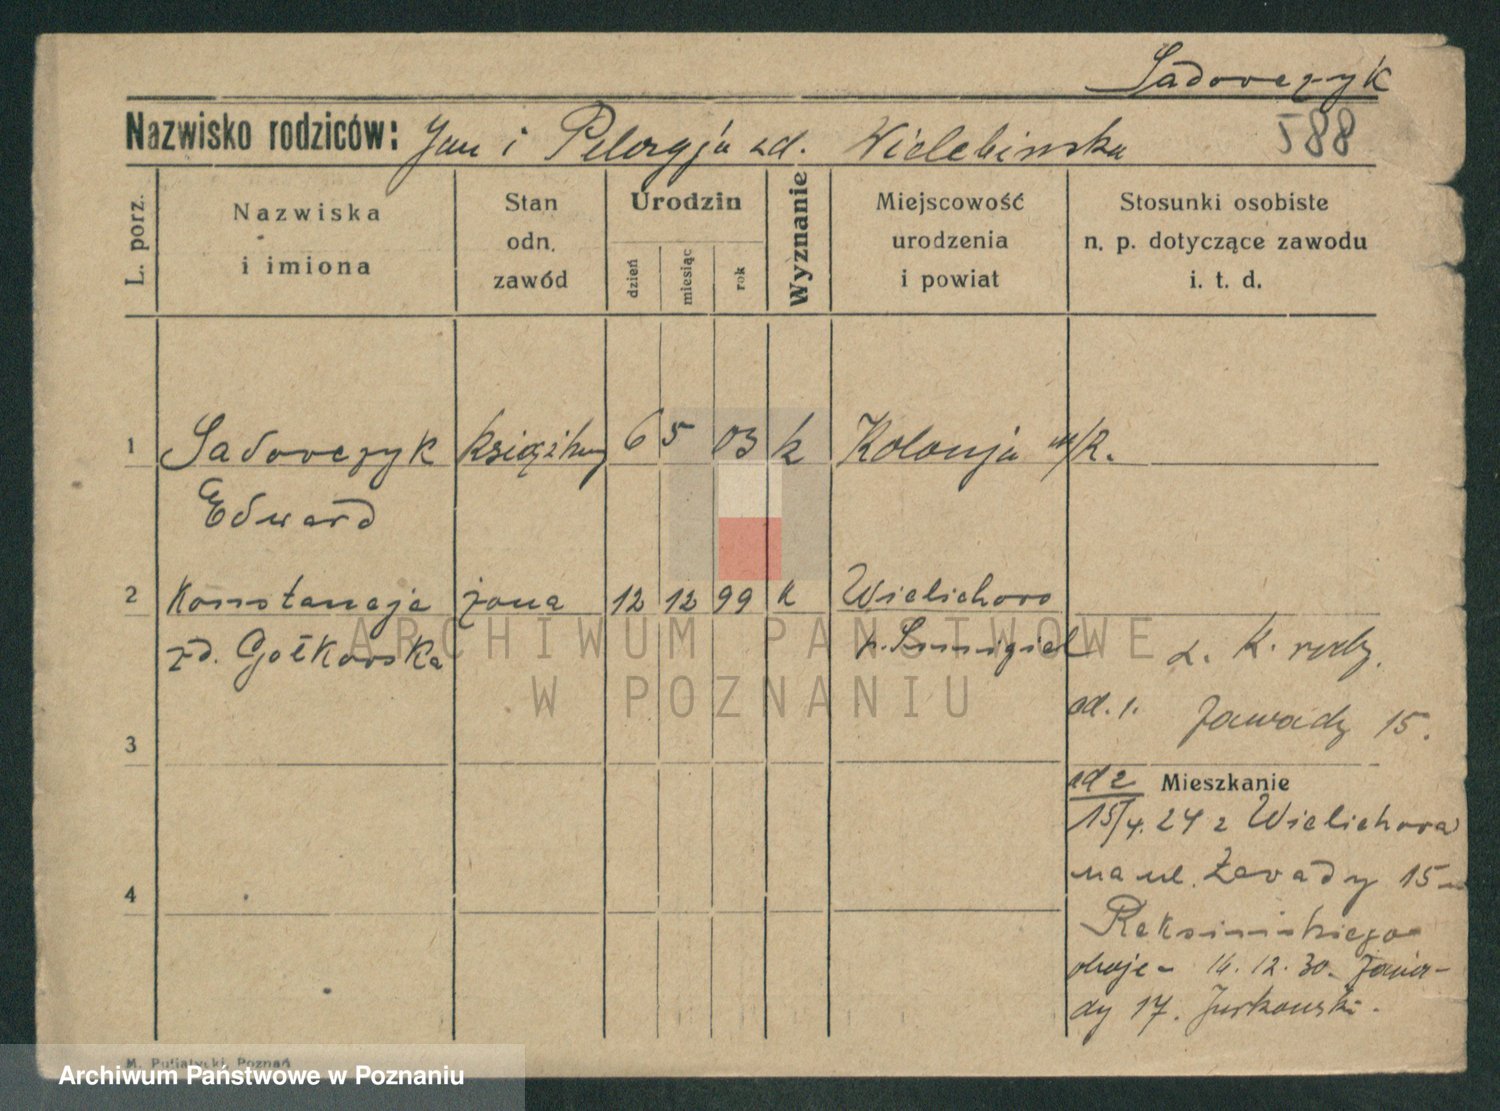 Sadowczyk
Nazwisko rodziców: Jan i Pelagja zd. Wielebinska
588
L. porz.
Nazwiska
i imiona
Stan
odn.
zawód
Urodzin
dzień
miesiąc
rok
Wyznanie
Miejscowość
urodzenia
i powiat
Stosunki osobiste
n. p. dotyczące zawodu
i. t. d.
1 Sadowczyk 6 5 03 k Kolonja
Edward
2 Konstancja żona 12 12 99 k Wielichowo
zd. Gołkowska p. Smigiel
z. k. rodz.
ad. 1. Zawady 15.
3
ad 2 Mieszkanie
15/4. 24 z Wielichowa
na ul. Zawady 15
4
oboje 16. 12. 30. Zawa-
dy 17. Jurkowski.
M. Putiatycki, Poznań
ARCHIWUM PAŃSTWOWE
W POZNANIU
Archiwum Państwowe w Poznaniu